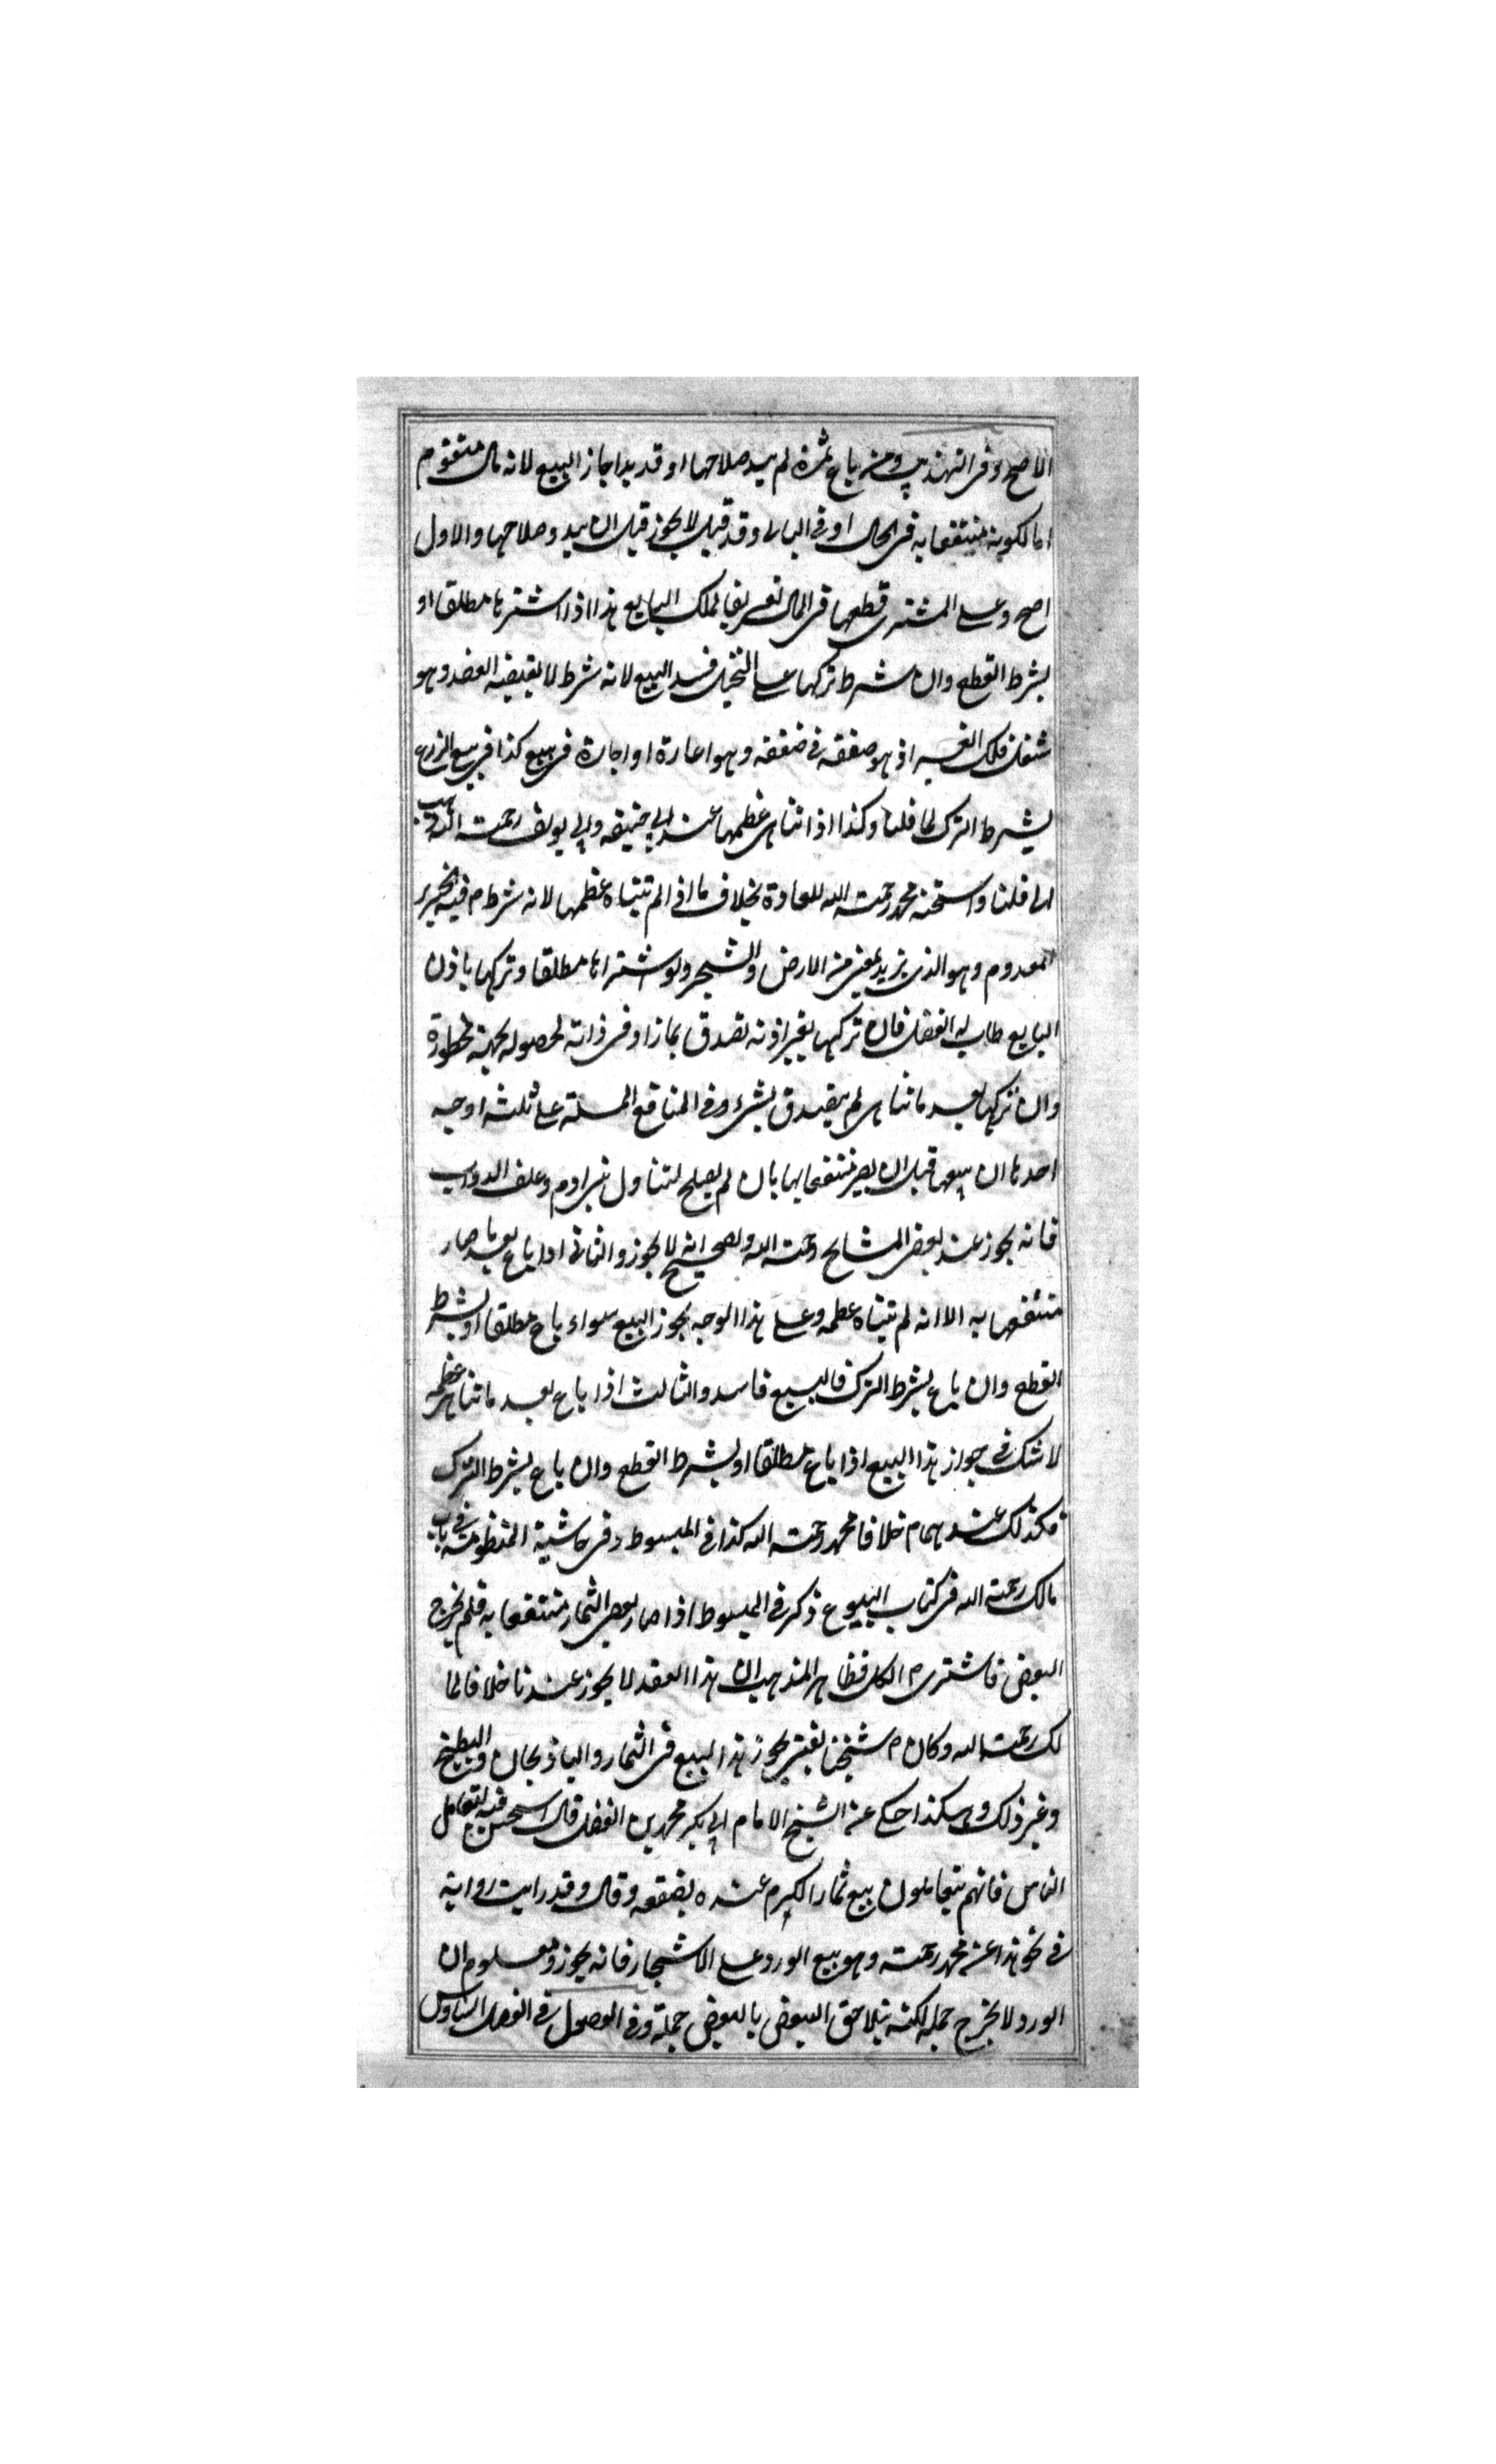 الاصح وفى التهذيب ومن باع ثمرة لم يبد صلاحها او قد بدا جاز البيع لانه مال متقوم
اما لكونه منتفعا به فى الحال او فى المال وقد قيل لا يجوز قبل ان يبدو صلاحها والاول
اصح وعلى المشترى قطعها فى المال تفريغا لملك البايع هذا اذا اشتراها مطلقا او
بشرط القطع وان شرط تركها على النخيل فسد البيع لانه شرط لا يقتضيه العقد وهو
شغل ملك الغير اذ هو صفقه فى صفقه وهو اعارة او اجارة فى بيع كذا فى بيع الزرع
بشرط الترك لما قلنا وكذا اذا تناهى عظمها عند ابى حنيفه وابى يوسف رحمت الله
لما قلنا واستحسنه محمد رحمت الله للعادة بخلاف ما اذا لم تتناه عظمها لانه شرط فيه الجزء
المعدوم وهو الذى يزيد بمعنى من الارض والشجر ولو اشتراها مطلقا وتركها باذن
البايع طاب له الفضل فان تركها بغير اذنه تصدق بما زاد فى ذاته لحصوله بجهة محظورة
وان تركها بعد ما تناهى لم يتصدق بشئ وفى المنافع المسئلة على ثلثه اوجه
احدها ان يبيعها قبل ان يصير منتفعا بها بان لم يصلح لتناول بنى ادم وعلف الدواب
فانه يجوز عند بعض المشايخ رحمت الله والصحيح انه لا يجوز والثانى اذا باع بعد ما صار
منتفعا به الا انه لم تتناه عظمه وعلى هذا الوجه يجوز البيع سواء باع مطلقا او بشرط
القطع وان باع بشرط الترك فالبيع فاسد والثالث اذا باع بعد ما تناهى عظمه
لا شك فى جواز هذا البيع اذا باع مطلقا او بشرط القطع وان باع بشرط الترك
فكذلك عندهما خلافا محمد رحمت الله كذا فى المبسوط وفى حاشية المنظومة فى باب
مالك رحمت الله فى كتاب البيوع ذكر فى المبسوط اذا صار بعض الثمار منتفعا به فلم يخرج
البعض فاشترى الكل فظاهر المذهب ان هذا العقد لا يجوز عندنا خلافا لما
لك رحمت الله وكان شيخنا يفتى بجواز هذا البيع فى الثمار والباذنجان والبطيخ
وغير ذلك وهكذا حكى عن الشيخ الامام ابى بكر محمد بن الفضل قال استحسن فيه لتعامل
الناس فانهم يتعاملون بيع ثمار الكرم عنده بصفقه وقال وقد رايت رواية
فى نحو هذا عن محمد رحمته وهو بيع الورد على الاشجار فانه يجوز ومعلوم ان
الورد لا يخرج جمله لكنه يتلاحق البعض بالبعض جملة وفى الفصول فى الفصل السادس